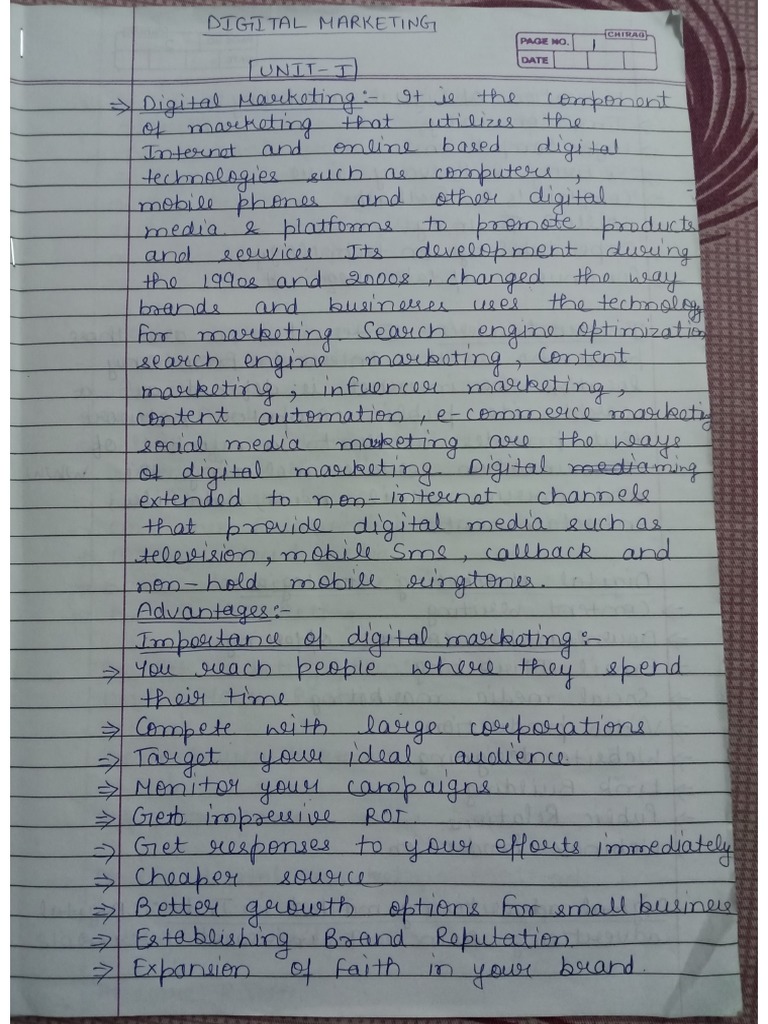 DIGITAL MARKETING
CHIRAG
PAGE NO. 1
DATE
UNIT-I
⇒ Digital Marketing:- It is the component
of marketing that utilizes the
Internet and online based digital
technologies such as computers,
mobile phones and other digital
media & platforms to promote products
and services Its development during
the 1990s and 2000s, changed the way
brands and businesses uses the technology
for marketing. Search engine optimization
search engine marketing, Content
marketing, infuencer marketing,
content automation, e-commerce marketing
social media marketing are the ways
of digital marketing. Digital
extended to non-internet channels
that provide digital media such as
television, mobile Sms, callback and
non-hold mobile ringtones.
Advantages:-
Importance of digital marketing:-
⇒ You reach people where they spend
their time
⇒ Compete with large corporations
⇒ Target your ideal audience
⇒ Monitor your campaigns
⇒ Get impressive ROI
⇒ Get responses to your efforts immediately
⇒ Cheaper source
⇒ Better growth options for small business
⇒ Establishing Brand Reputation
⇒ Expansion of Faith in your brand.